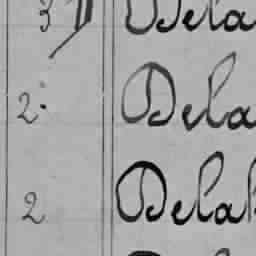 3 Dela
2. Dela
2 Delak